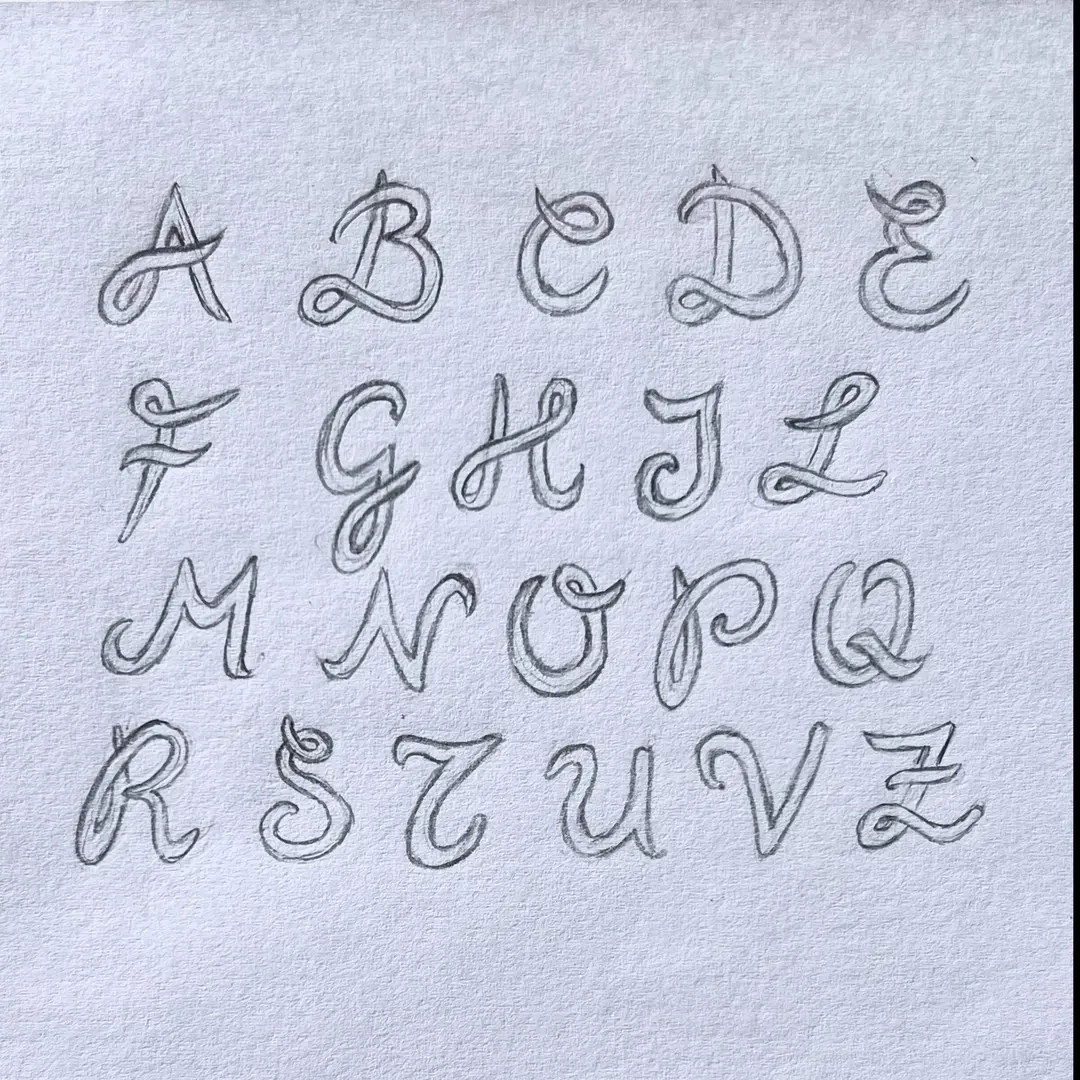 A B C D E
F G H I L
M N O P Q
R S T U V Z